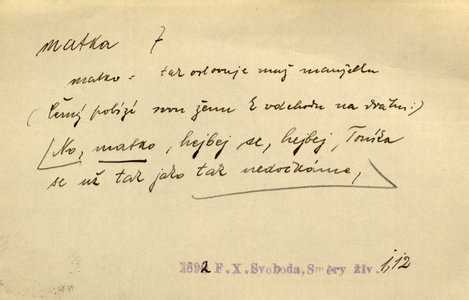 matka 7
matko = tak oslovuje muž manželku
(Černý pobízí svou ženu k odchodu na dráhu:)
No, matko, hejbej se, hejbej, Toníka
se už tak jako tak nedočkáme,
1892 F. X. Svoboda, Směry živ. 1,12